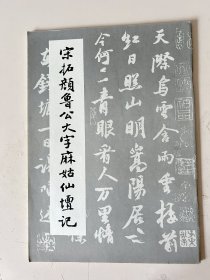 天際烏雲含雨重樓前
紅日照山明嵩陽居士
今何在青眼看人萬里情
宋拓顏魯公大字麻姑仙壇記
在錢塘一日